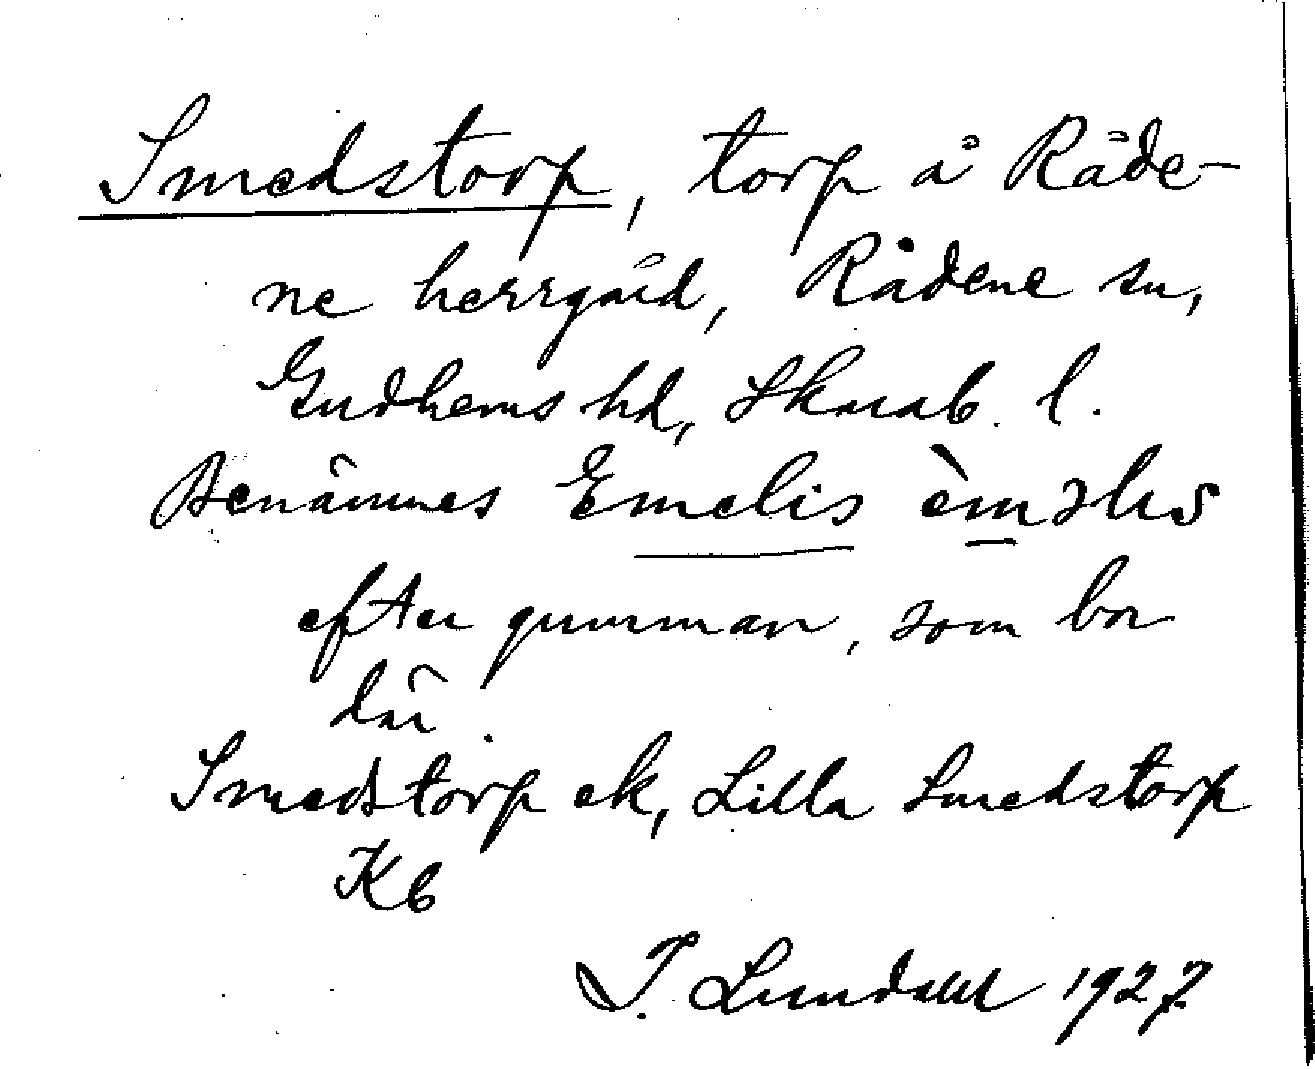 Smedstorp, torp å Råde-
ne herrgård, Rådene sn,
Gudhems hd, Skarab. l.
Benämnes Emelis èməlıs
efter gumman, som bor
där.
Smedstorp ek, Lilla Smedstorp
Kb
I. Lundahl 1927